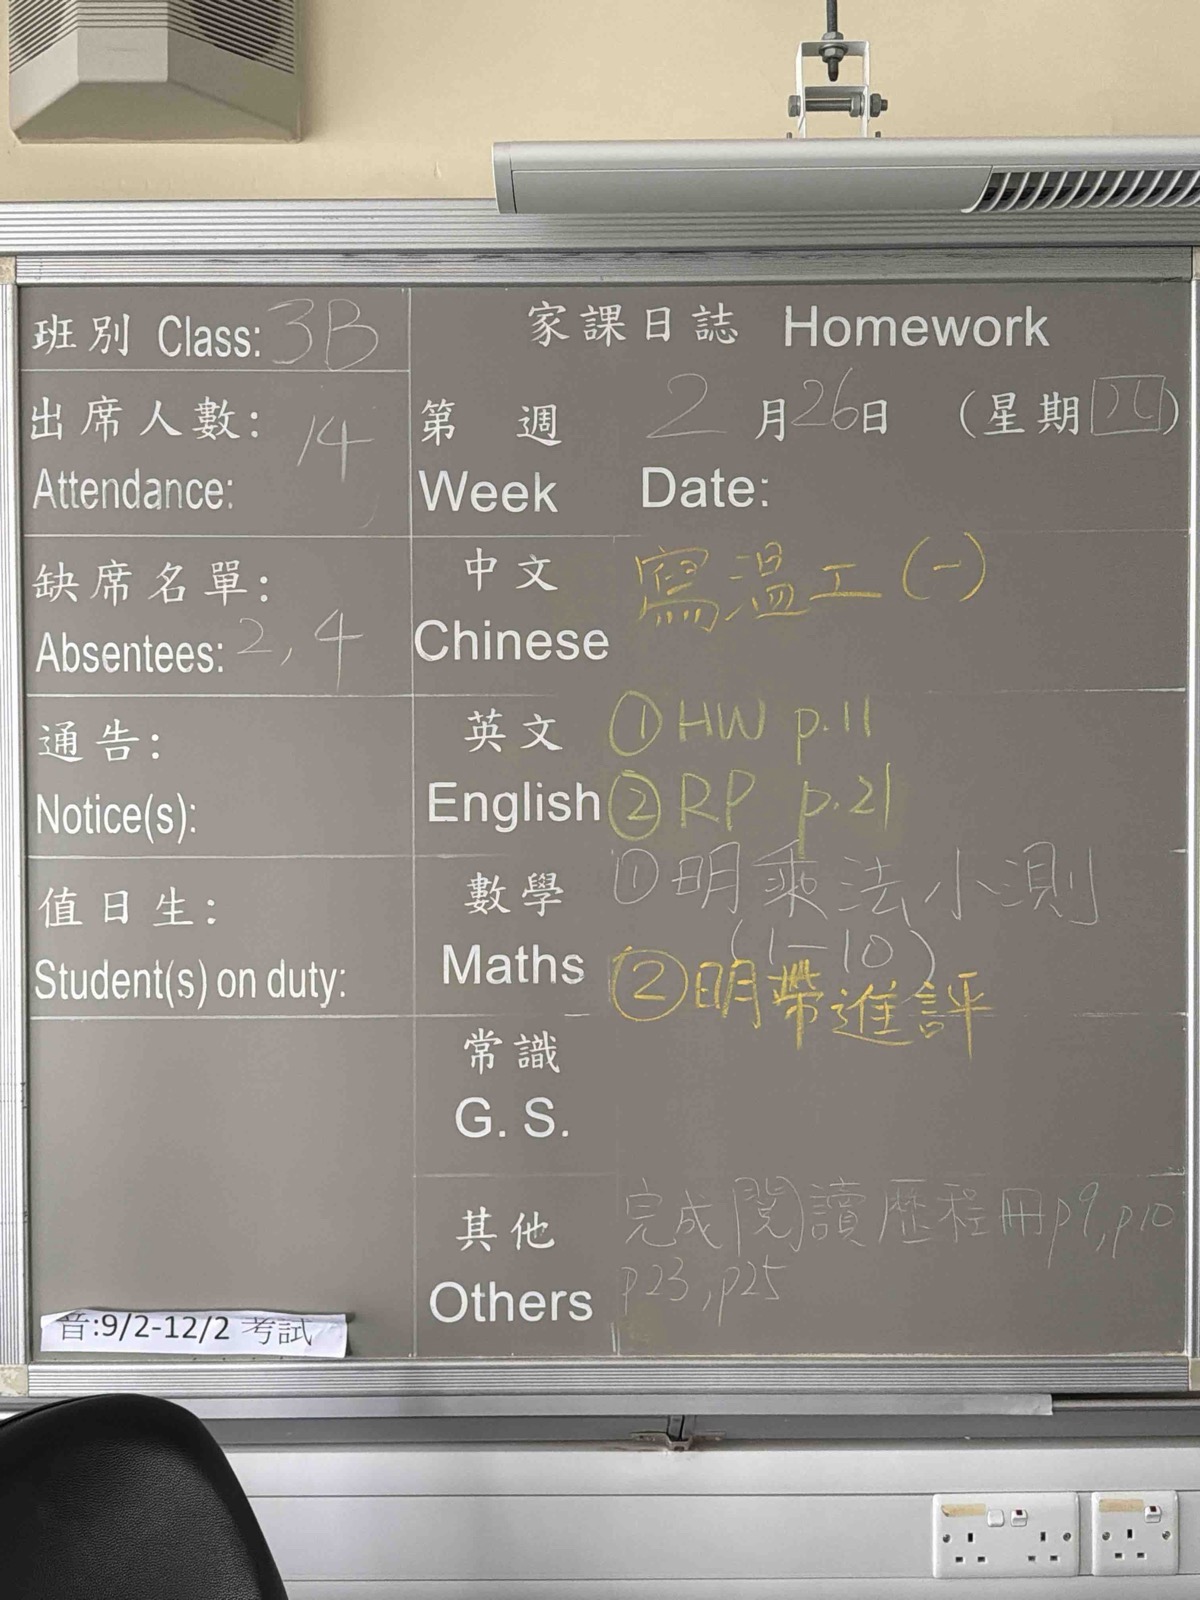 班別 Class: 3B
出席人數: 14
Attendance:
缺席名單:
Absentees: 2, 4
通告:
Notice(s):
值日生:
Student(s) on duty:
音:9/2-12/2 考試
家課日誌 Homework
第 週 2月26日 (星期四)
Week Date:
中文 寫溫工(一)
Chinese
英文 ① HW p.11
English ② RP p.21
數學 ①明乘法小測
(1-10)
Maths ②明帶進評
常識
G. S.
其他 完成閱讀歷程冊p9,p10
Others p23,p25